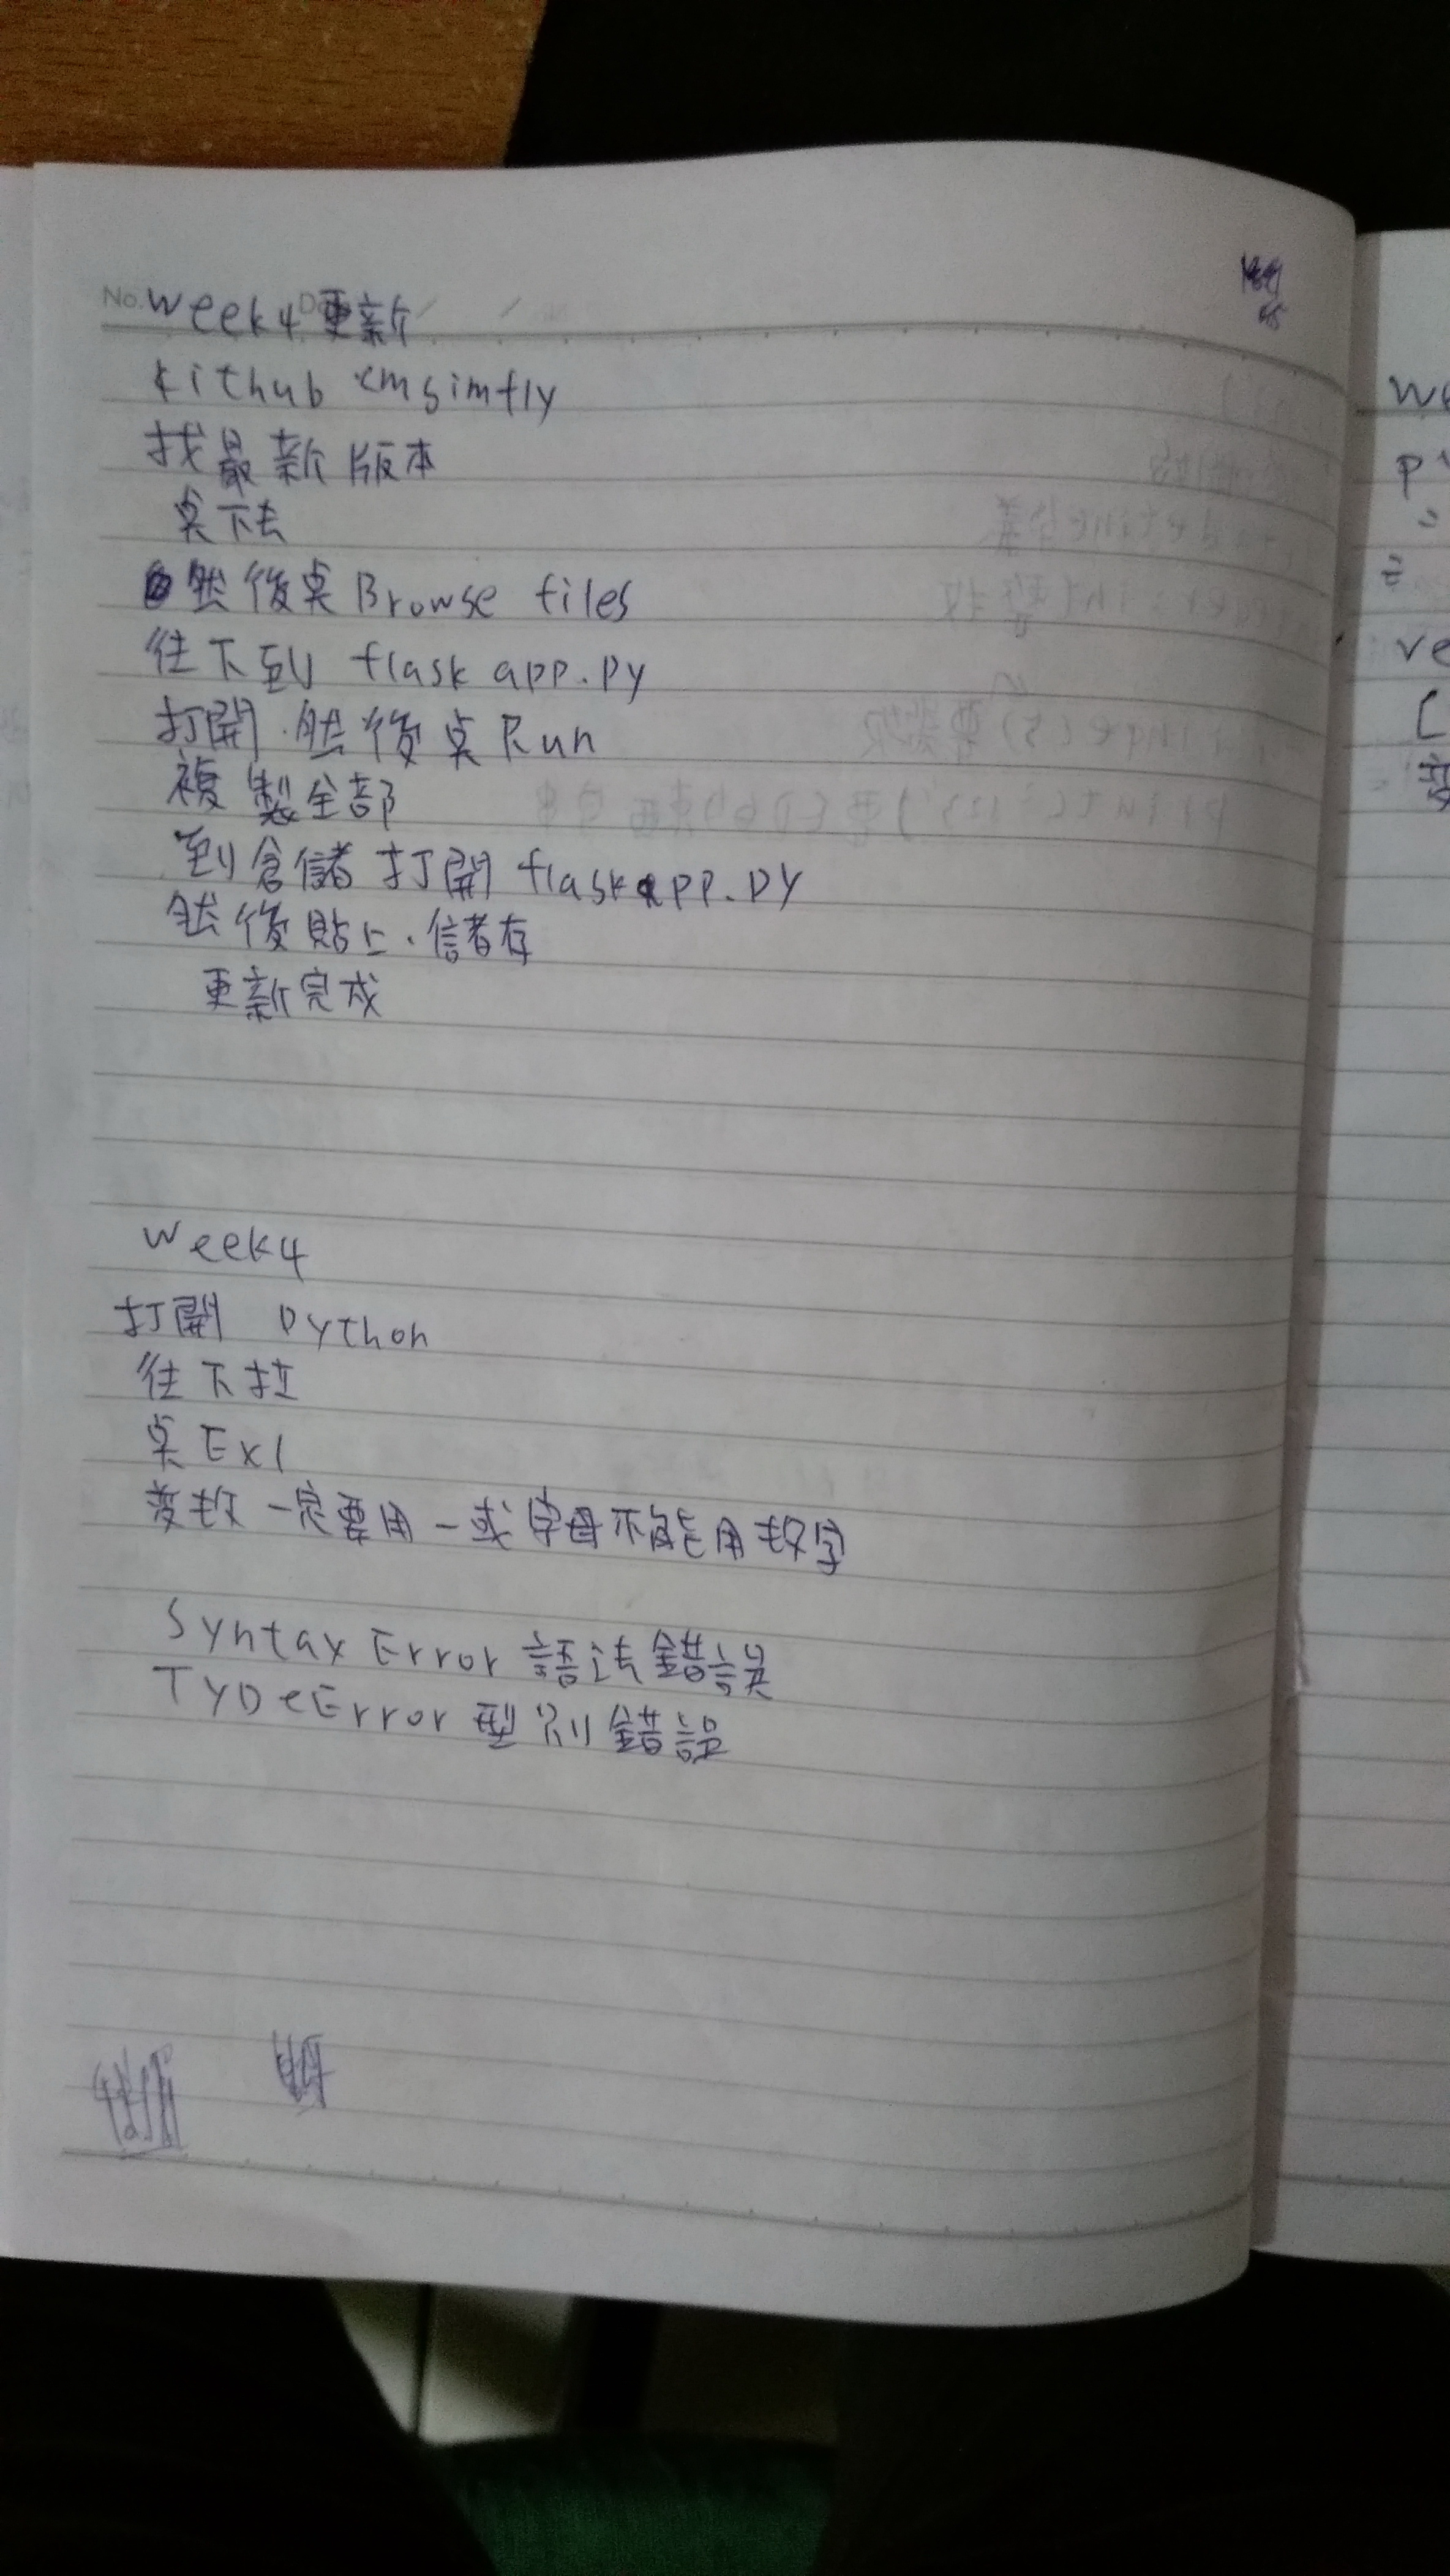 No.
week4更新
Github cmsimfly
找最新版本
点下去
然後点Browse files
往下到 flask app.py
打開.然後点Run
複製全部
到倉儲打開 flaskapp.py
然後貼上.儲存
更新完成
week4
打開 python
往下拉
点Ex1
变数一定要用_或字母不能用数字
Syntax Error 語法錯誤
TypeError 型別錯誤